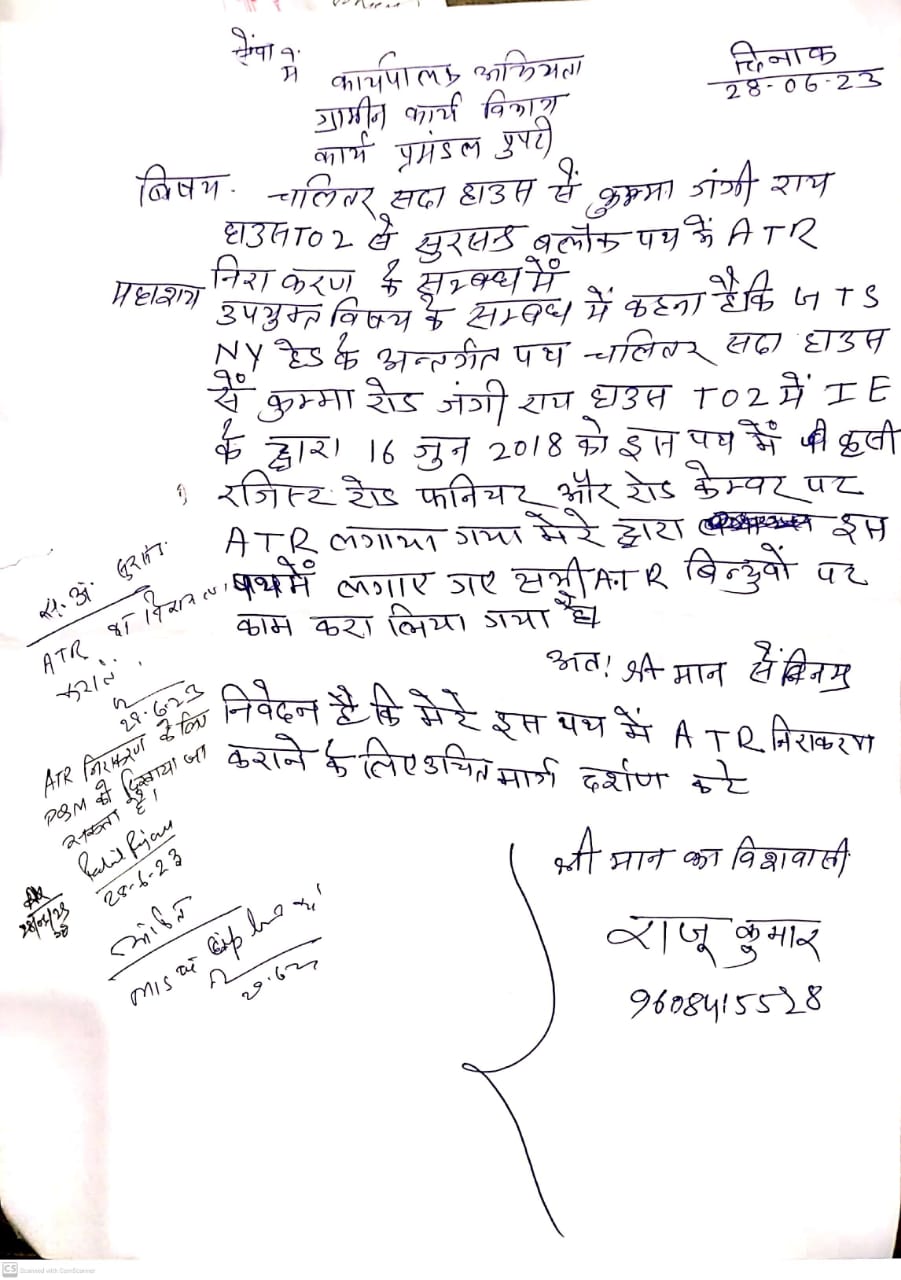 सेवा में
दिनाक
28-06-23
कार्यपालक अभियंता
ग्रामीन कार्य विभाग
कार्य प्रमंडल पुपरी
बिषय. चलितर सदा हाउस से कुम्मा जंगी राय
हाउस T02 से सुरसंड ब्लॉक पथ में ATR
निराकरण के सम्बंध में
महाशय
उपयुक्त विषय के सम्बंध में कहना है कि GTS
NY हेड के अन्तर्गत पथ चलितर सदा हाउस
से कुम्मा रोड जंगी राय हाउस T02 में IE
के द्वारा 16 जुन 2018 को इस पथ में
रजिस्टर रोड फनियर और रोड केम्बर पर
ATR लगाया गया मेरे द्वारा इस
पथ में लगाए गए सभी A.T R बिन्दुवों पर
काम करा लिया गया है
अत! श्री मान से बिनम्र
निवेदन है कि मेरे इस पथ में A T R निराकरण
कराने के लिए उचित मार्ग दर्शण करे
श्री मान का विशवासी
राजू कुमार
9608415528
स. अ. सुरसंड
ATR का
कराने.
28.6.23
ATR निराकरण के लिए
को दिखाया जा
सकता है।
28-6-23
MIS